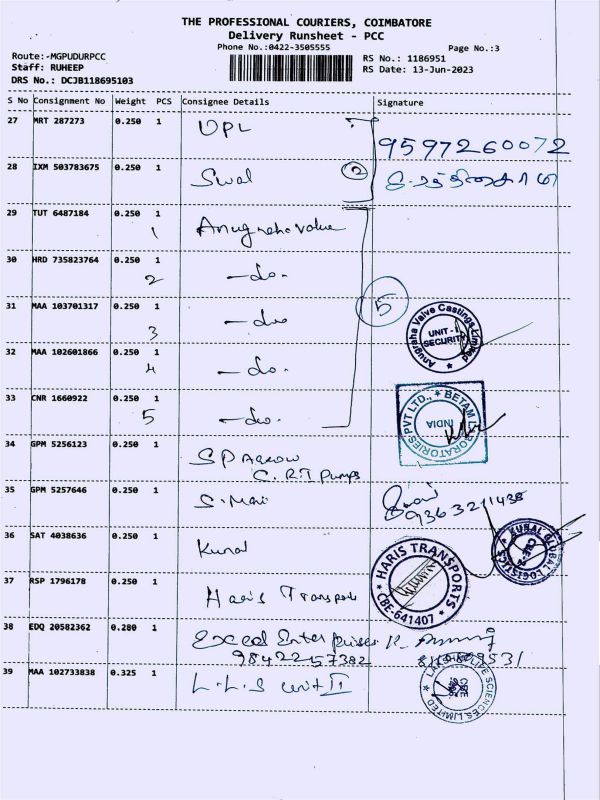 THE PROFESSIONAL COURIERS, COIMBATORE
Delivery Runsheet - PCC
Phone No.:0422-3505555
Page No.:3
Route:-MGPUDURPCC
Staff: RUHEEP
DRS No.: DCJB118695103
RS No.: 1186951
RS Date: 13-Jun-2023
S No Consignment No Weight PCS Consignee Details Signature
27 MRT 287273 0.250 1 UPL
9597260072
28 IXM 503783675 0.250 1 Swal 2
29 TUT 6487184 0.250 1 Anugraha Value
1
30 HRD 735823764 0.250 1 -do-
2
5
31 MAA 103701317 0.250 1 -do-
3
Anugraha Valve Castings Limited UNIT - 1 SECURITY
32 MAA 102601866 0.250 1 -do-
4
33 CNR 1660922 0.250 1 -do-
5
BETAM LABORATORIES PVT LTD., INDIA
34 GPM 5256123 0.250 1 SP Arrow
C.R.I Pumps
35 GPM 5257646 0.250 1 S. Mani
9363211438
36 SAT 4038636 0.250 1 Kunal
KUNAL GLOBAL LOGISTICS
37 RSP 1796178 0.250 1 Haris Transports
HARIS TRANSPORTS CBE-641407
38 EDQ 20582362 0.280 1 Exceed Enterprises
9842257382
39 MAA 102733838 0.325 1 L.L.S unit II
SCIENCES LIMITED